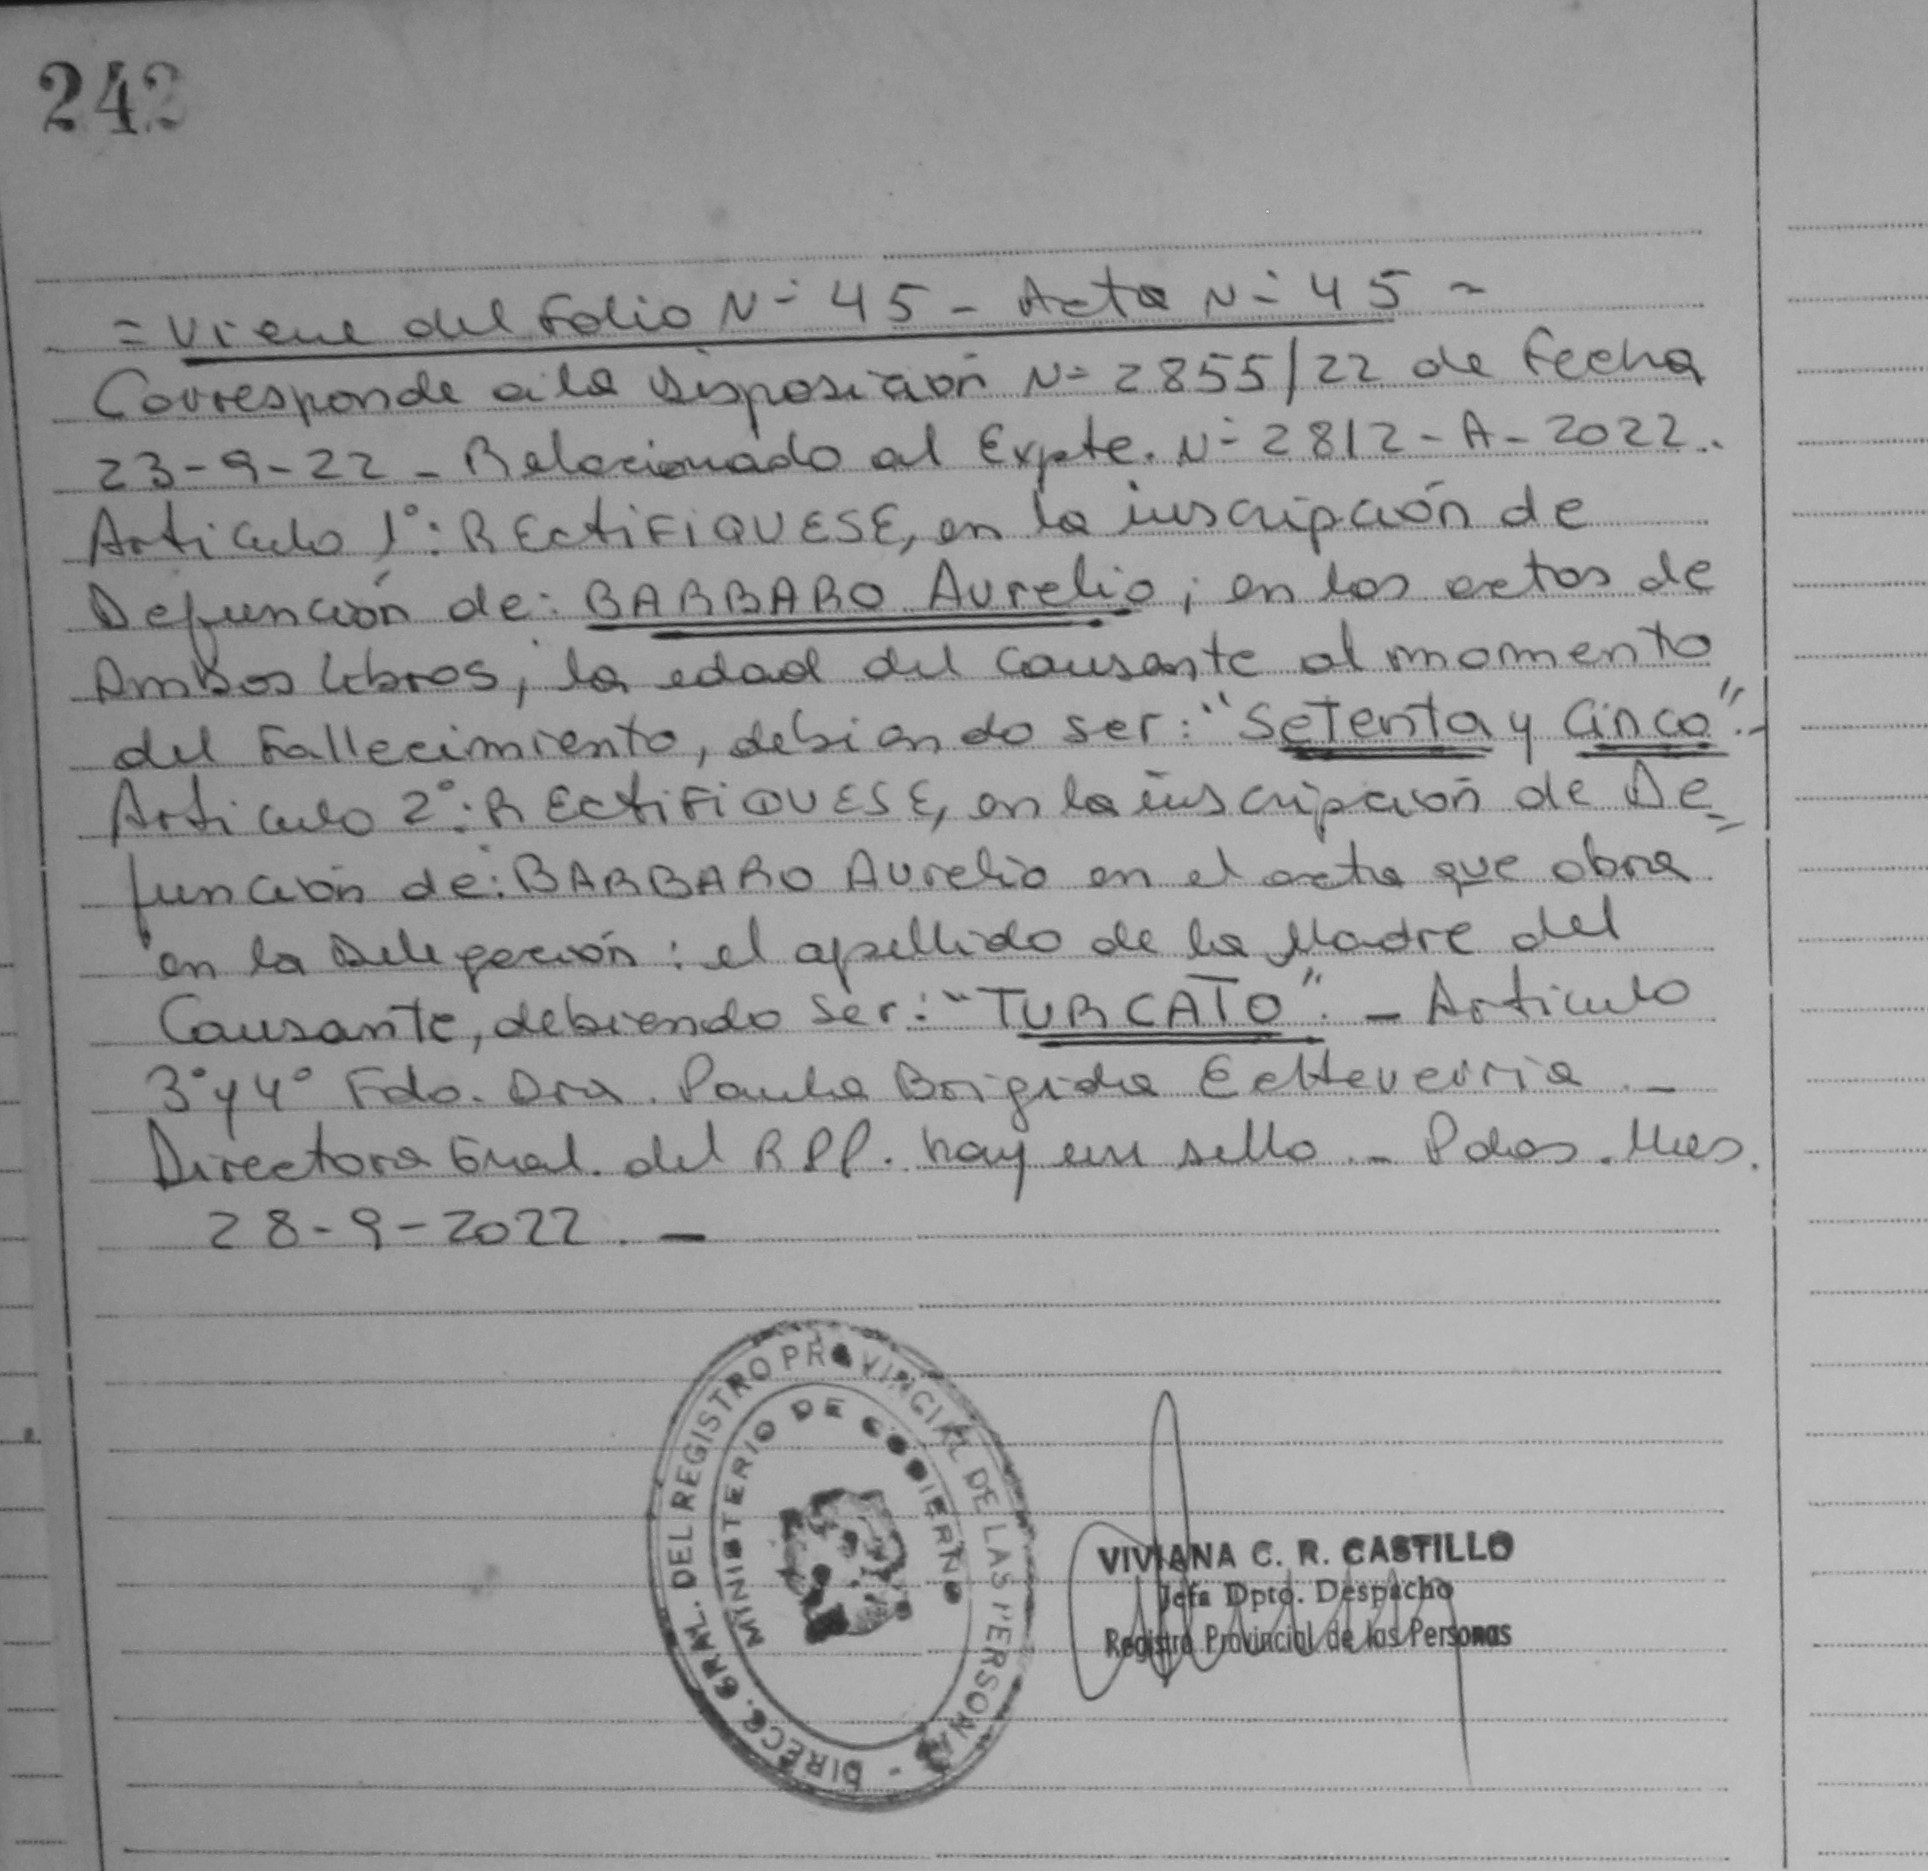 242
= Viene del Folio N= 45 - Acta N= 45 -
Corresponde a la Disposición N= 2855/22 de Fecha
23-9-22 - Relacionado al Expte. N= 2812-A-2022..
Articulo 1°: RECtiFIQUESE, en la inscripción de
Defunción de: BARBARO Aurelio; en los actos de
Ambos libros, la edad del causante al momento
del Fallecimiento, debiendo ser: "Setenta y Cinco".-
Articulo 2°: RECtiFIQUESE, en la inscripción de De=
función de: BARBARO Aurelio en el acta que obra
en la Delegación: el apellido de la Madre del
Causante, debiendo ser: "TURCATO". - Articulo
3° y 4° Fdo. Dra. Paula Brigida Echeverria . -
Directora Gral. del RPP. hay un sello . - Pdas. Mnes.
28-9-2022 . -
DIRECC. GRAL. DEL REGISTRO PROVINCIAL DE LAS PERSONAS -
MINISTERIO DE GOBIERNO
VIVIANA C. R. CASTILLO
Jefa Dpto. Despacho
Registro Provincial de las Personas